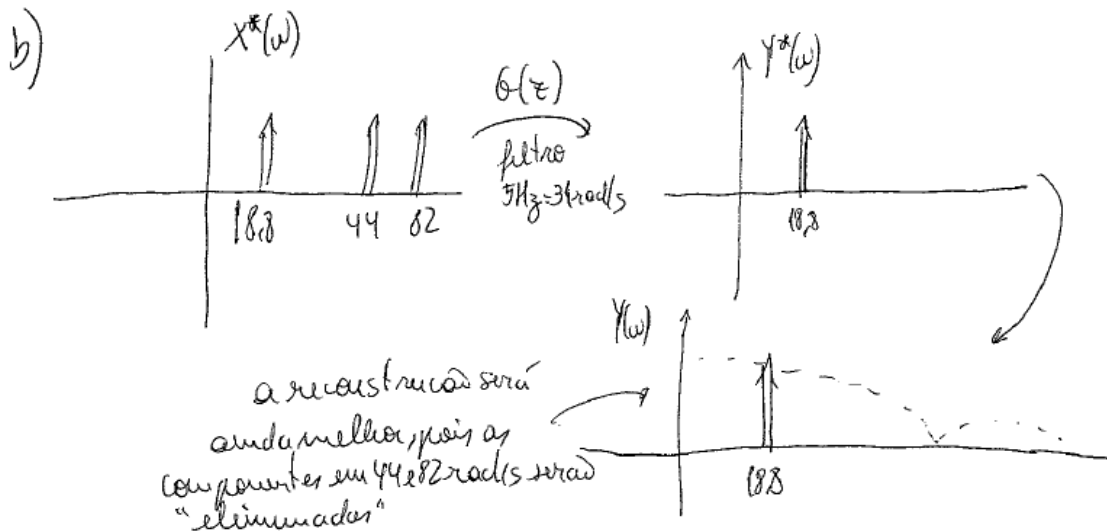 b)
X*(ω)
18,8 44 82
G(z)
filtro
5Hz=31rad/s
Y*(ω)
18,8
Y(ω)
18,8
a reconstrução será
ainda melhor, pois as
componentes em 44 e 82 rad/s serão
"eliminadas"